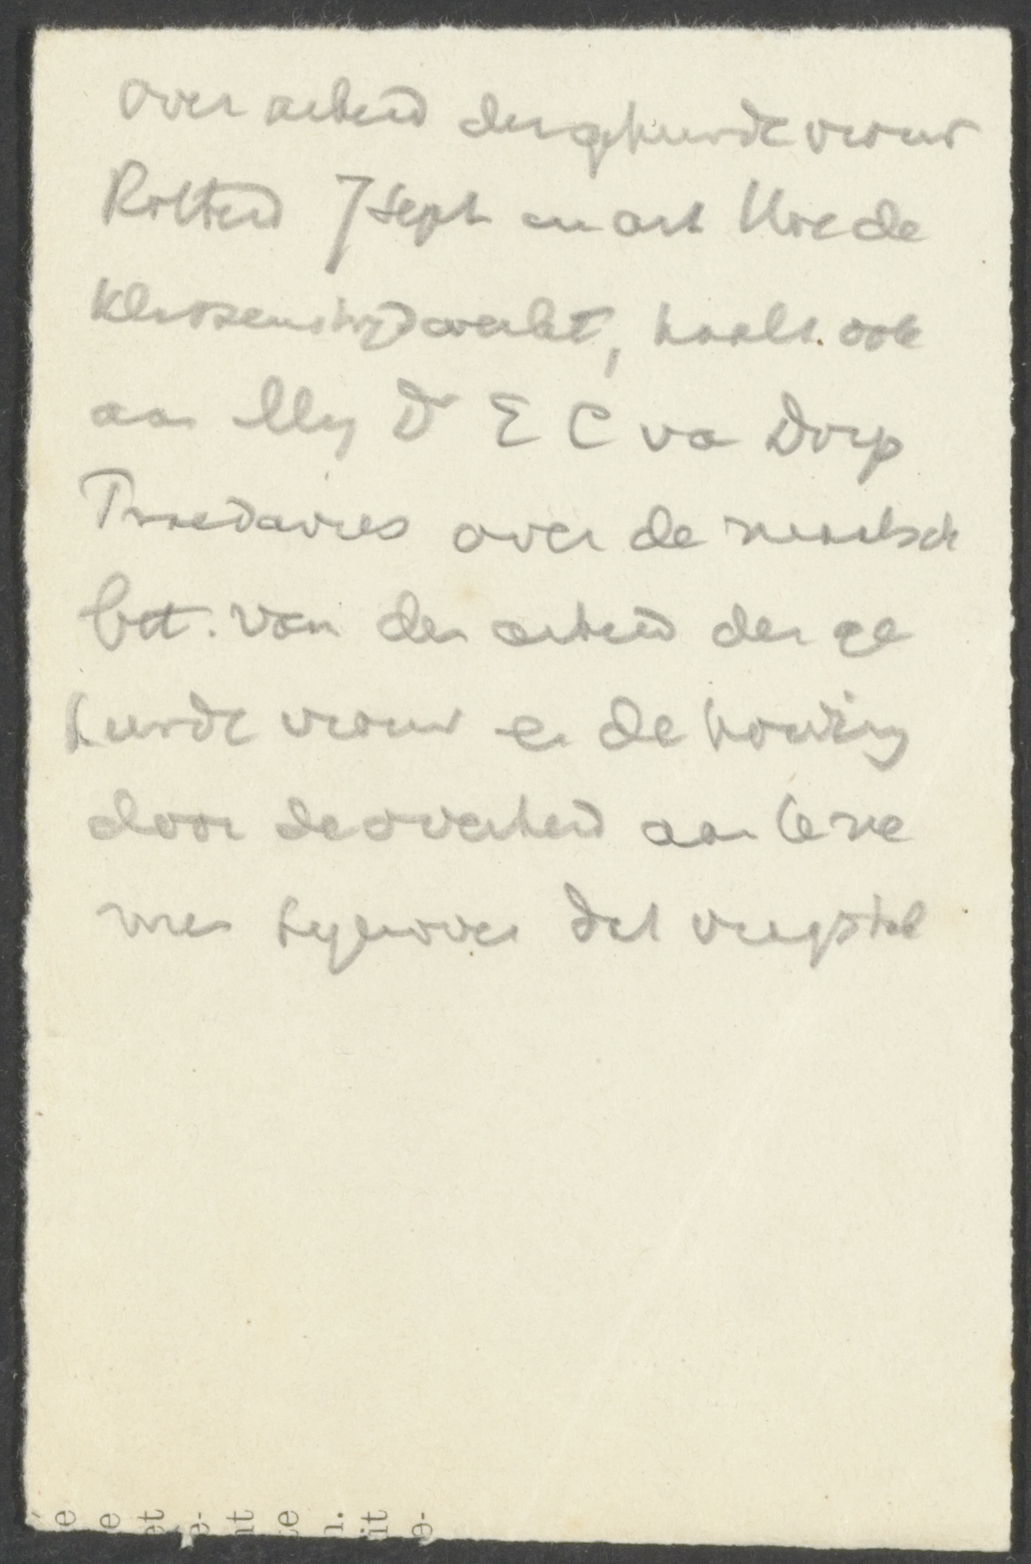 over arbeid der gehuwde vrouw
Rotterd 7 Sept in art Hoe de
Klassenstrijd werkt, haalt ook
aan Mej Dr E C van Dorp
Praeadvies over de maatsch
bet. van den arbeid der ge
huwde vrouw en de houding
door de overheid aan te ne
men tegenover dat vraagstuk
e
e
et
e-
nt
te
n.
it
e-